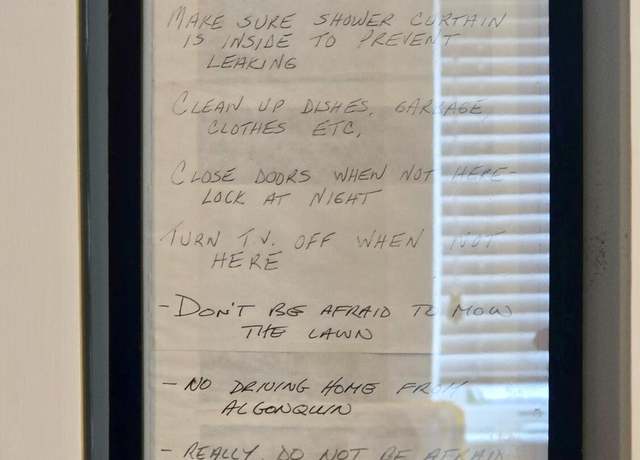 MAKE SURE SHOWER CURTAIN
IS INSIDE TO PREVENT
LEAKING
CLEAN UP DISHES, GARBAGE,
CLOTHES ETC,
CLOSE DOORS WHEN NOT HERE-
LOCK AT NIGHT
TURN T.V. OFF WHEN NOT
HERE
- DON'T BE AFRAID TO MOW
THE LAWN
- NO DRIVING HOME FROM
ALGONQUIN
- REALLY, DO NOT BE AFRAID